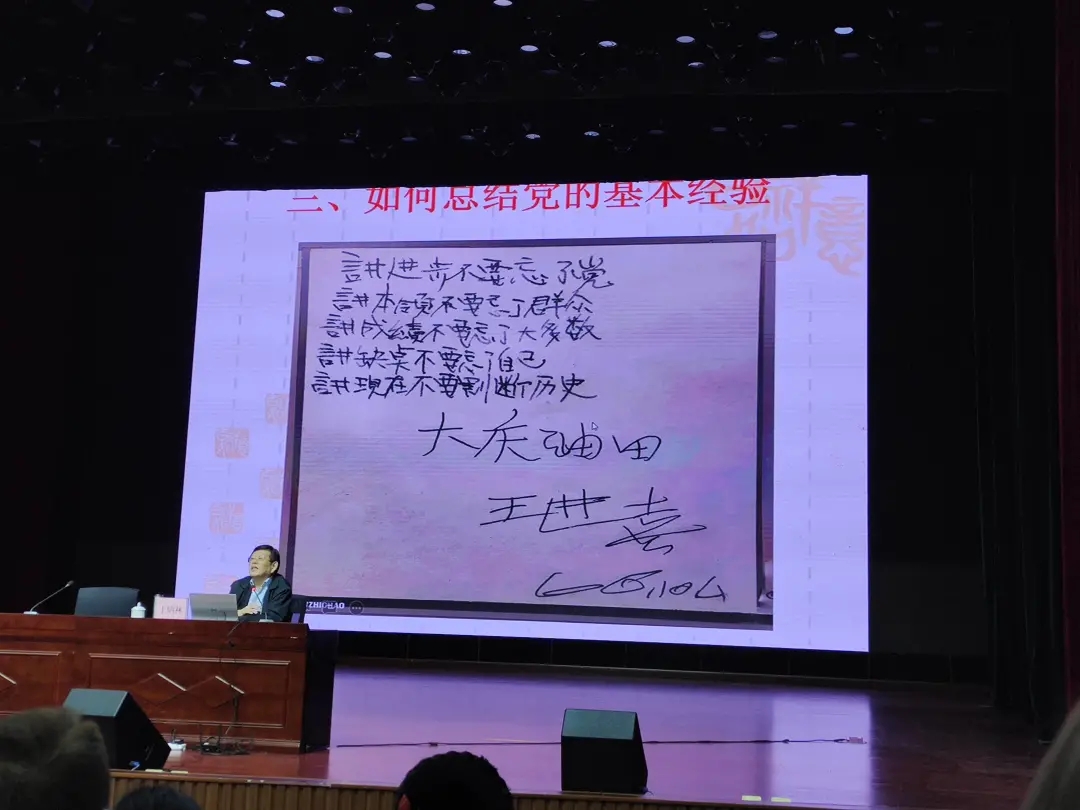 三、如何总结党的基本经验
講进步不要忘了党
講本領不要忘了群众
講成績不要忘了大多数
講缺点不要忘了自己
講現在不要割断历史
大庆油田
王进喜